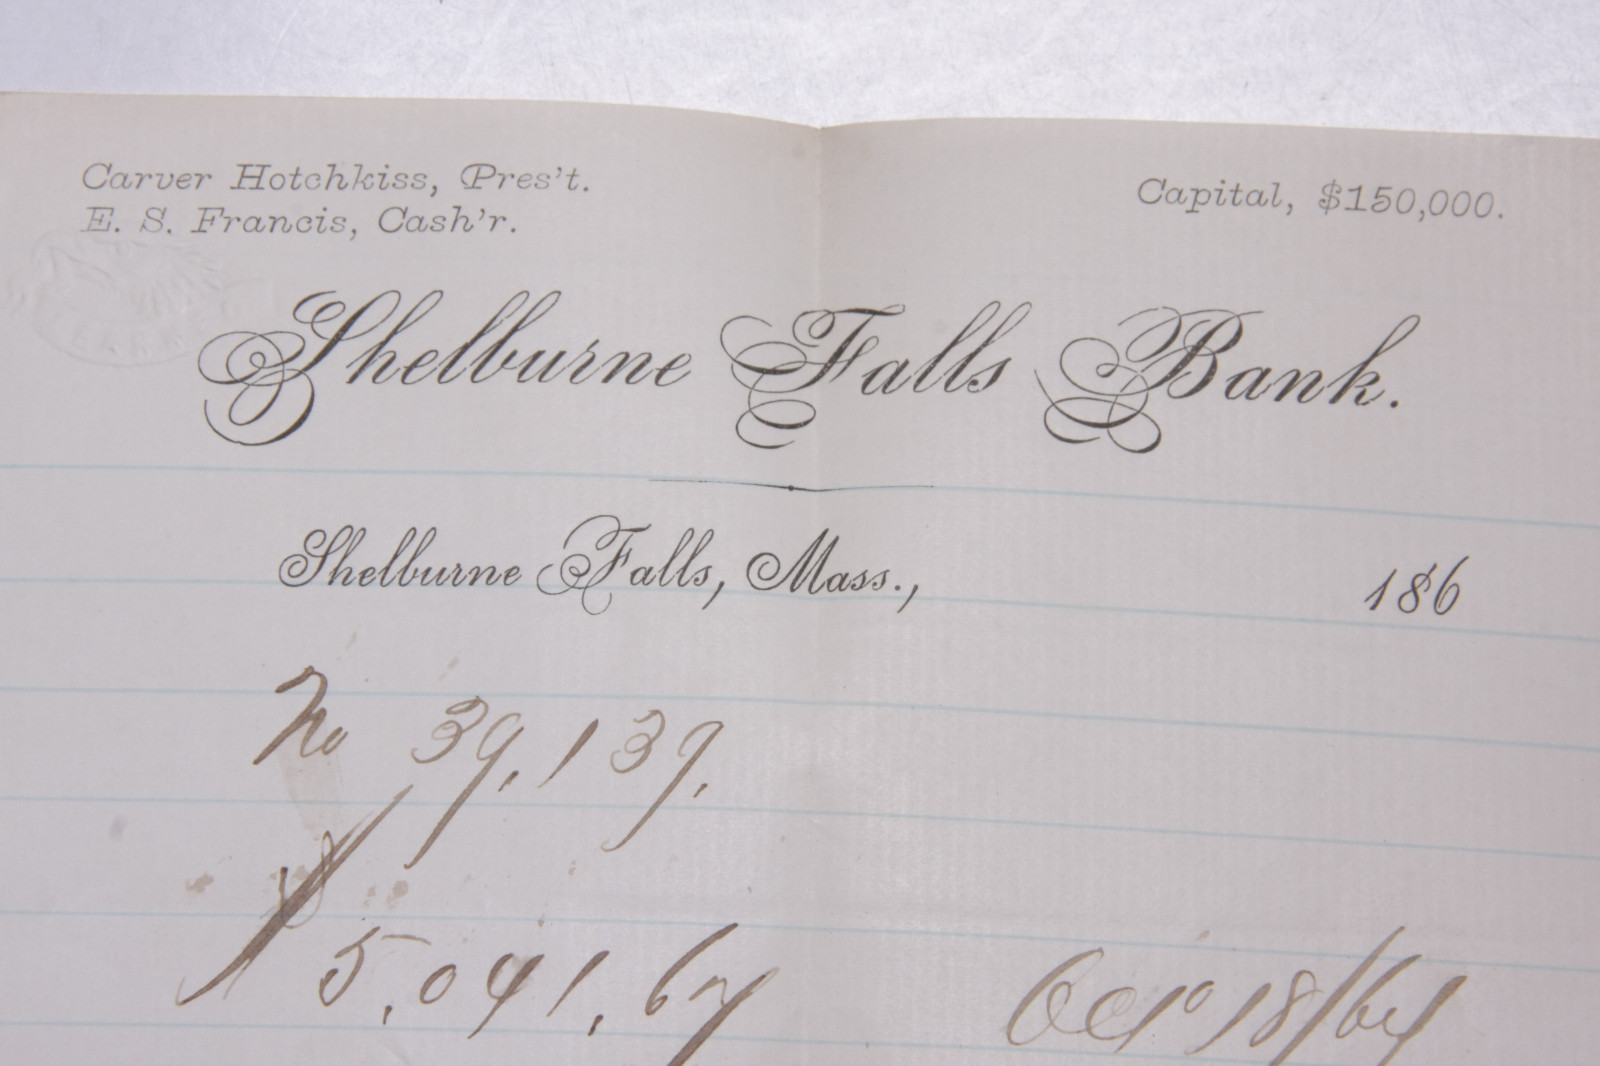 Carver Hotchkiss, Pres't.
E. S. Francis, Cash'r.
Capital, $150,000.
Shelburne Falls Bank.
Shelburne Falls, Mass., 186
No 39,139.
$5,041,67 Oct 18/64